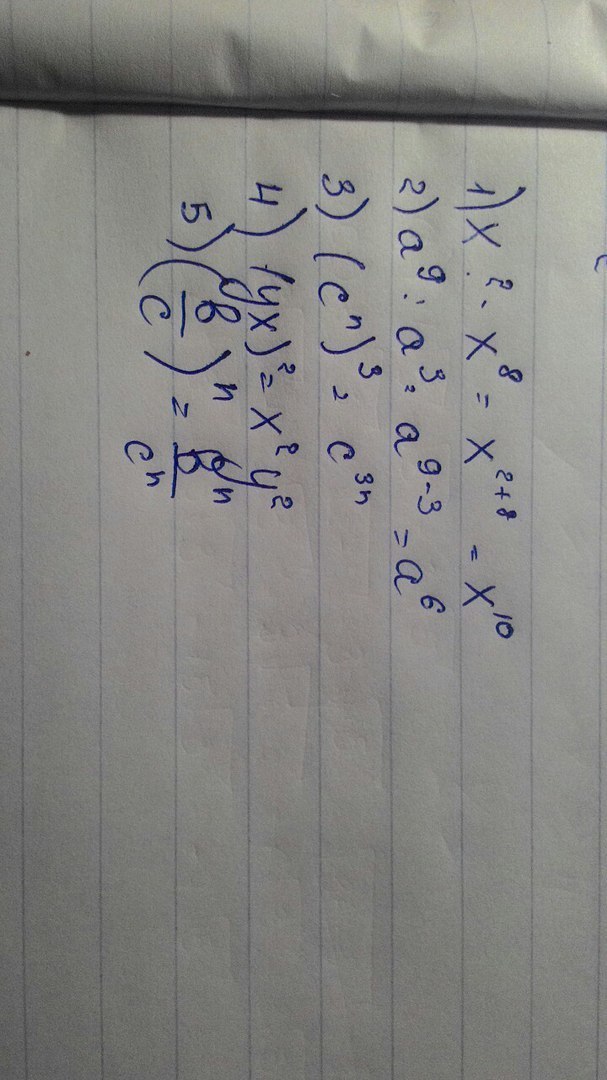 1) x² · x⁸ = x²⁺⁸ = x¹⁰
2) a⁹ : a³ = a⁹⁻³ = a⁶
3) (cⁿ)³ = c³ⁿ
4) (yx)² = x² y²
5) (в/c)ⁿ = вⁿ/cⁿ